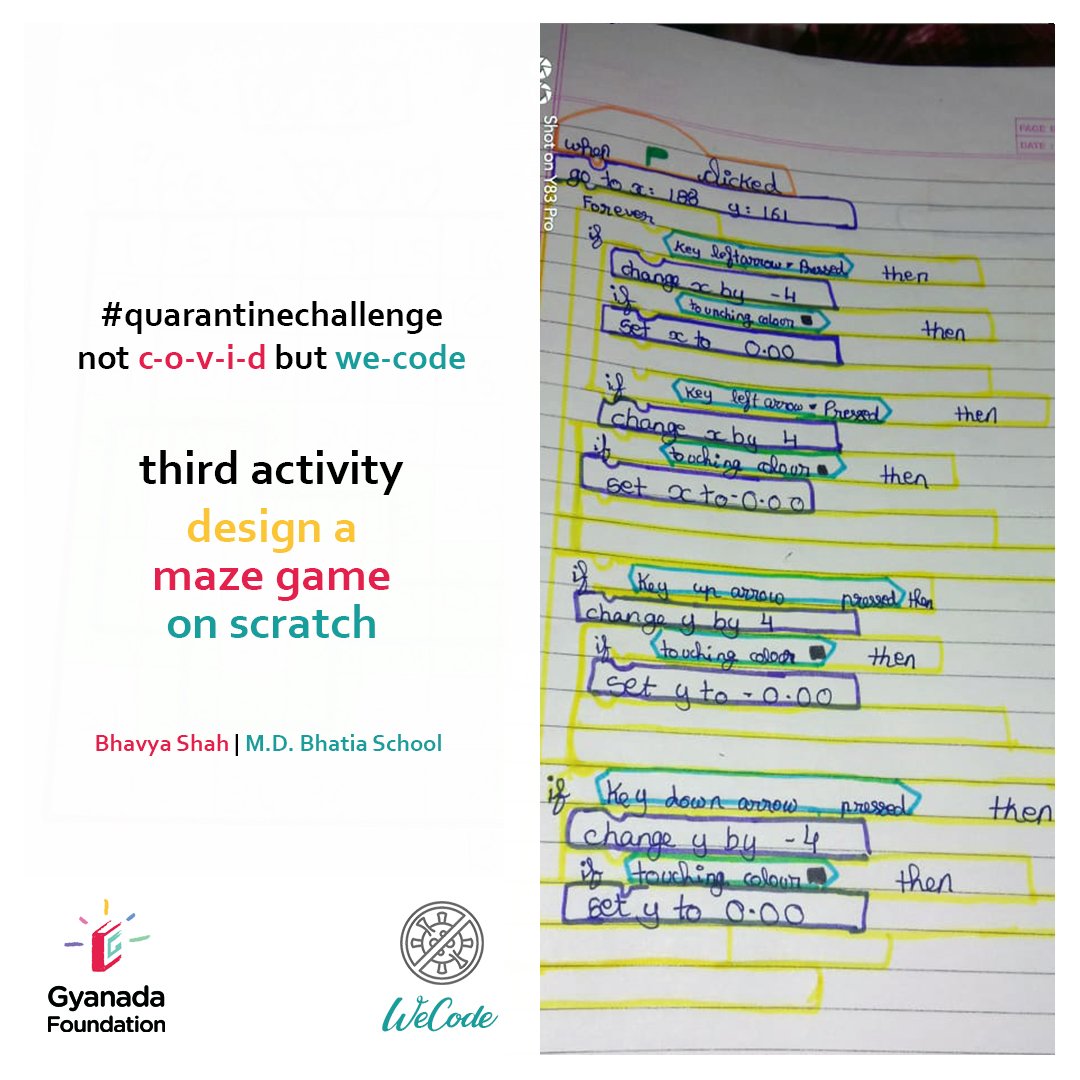 #quarantinechallenge
not c-o-v-i-d but we-code
third activity
design a
maze game
on scratch
Bhavya Shah | M.D. Bhatia School
Gyanada
Foundation
WeCode
Shot on Y83 Pro
PAGE
DATE:
when clicked
go to x: 188 y: 161
Forever
if key leftarrow Pressed then
change x by -4
if tounching colour then
set x to 0.00
if key left arrow Pressed then
change x by 4
if touching colour then
set x to -0.00
if Key up arrow pressed then
change y by 4
if touching colour then
set y to -0.00
if Key down arrow pressed then
change y by -4
if touching colour then
set y to 0.00